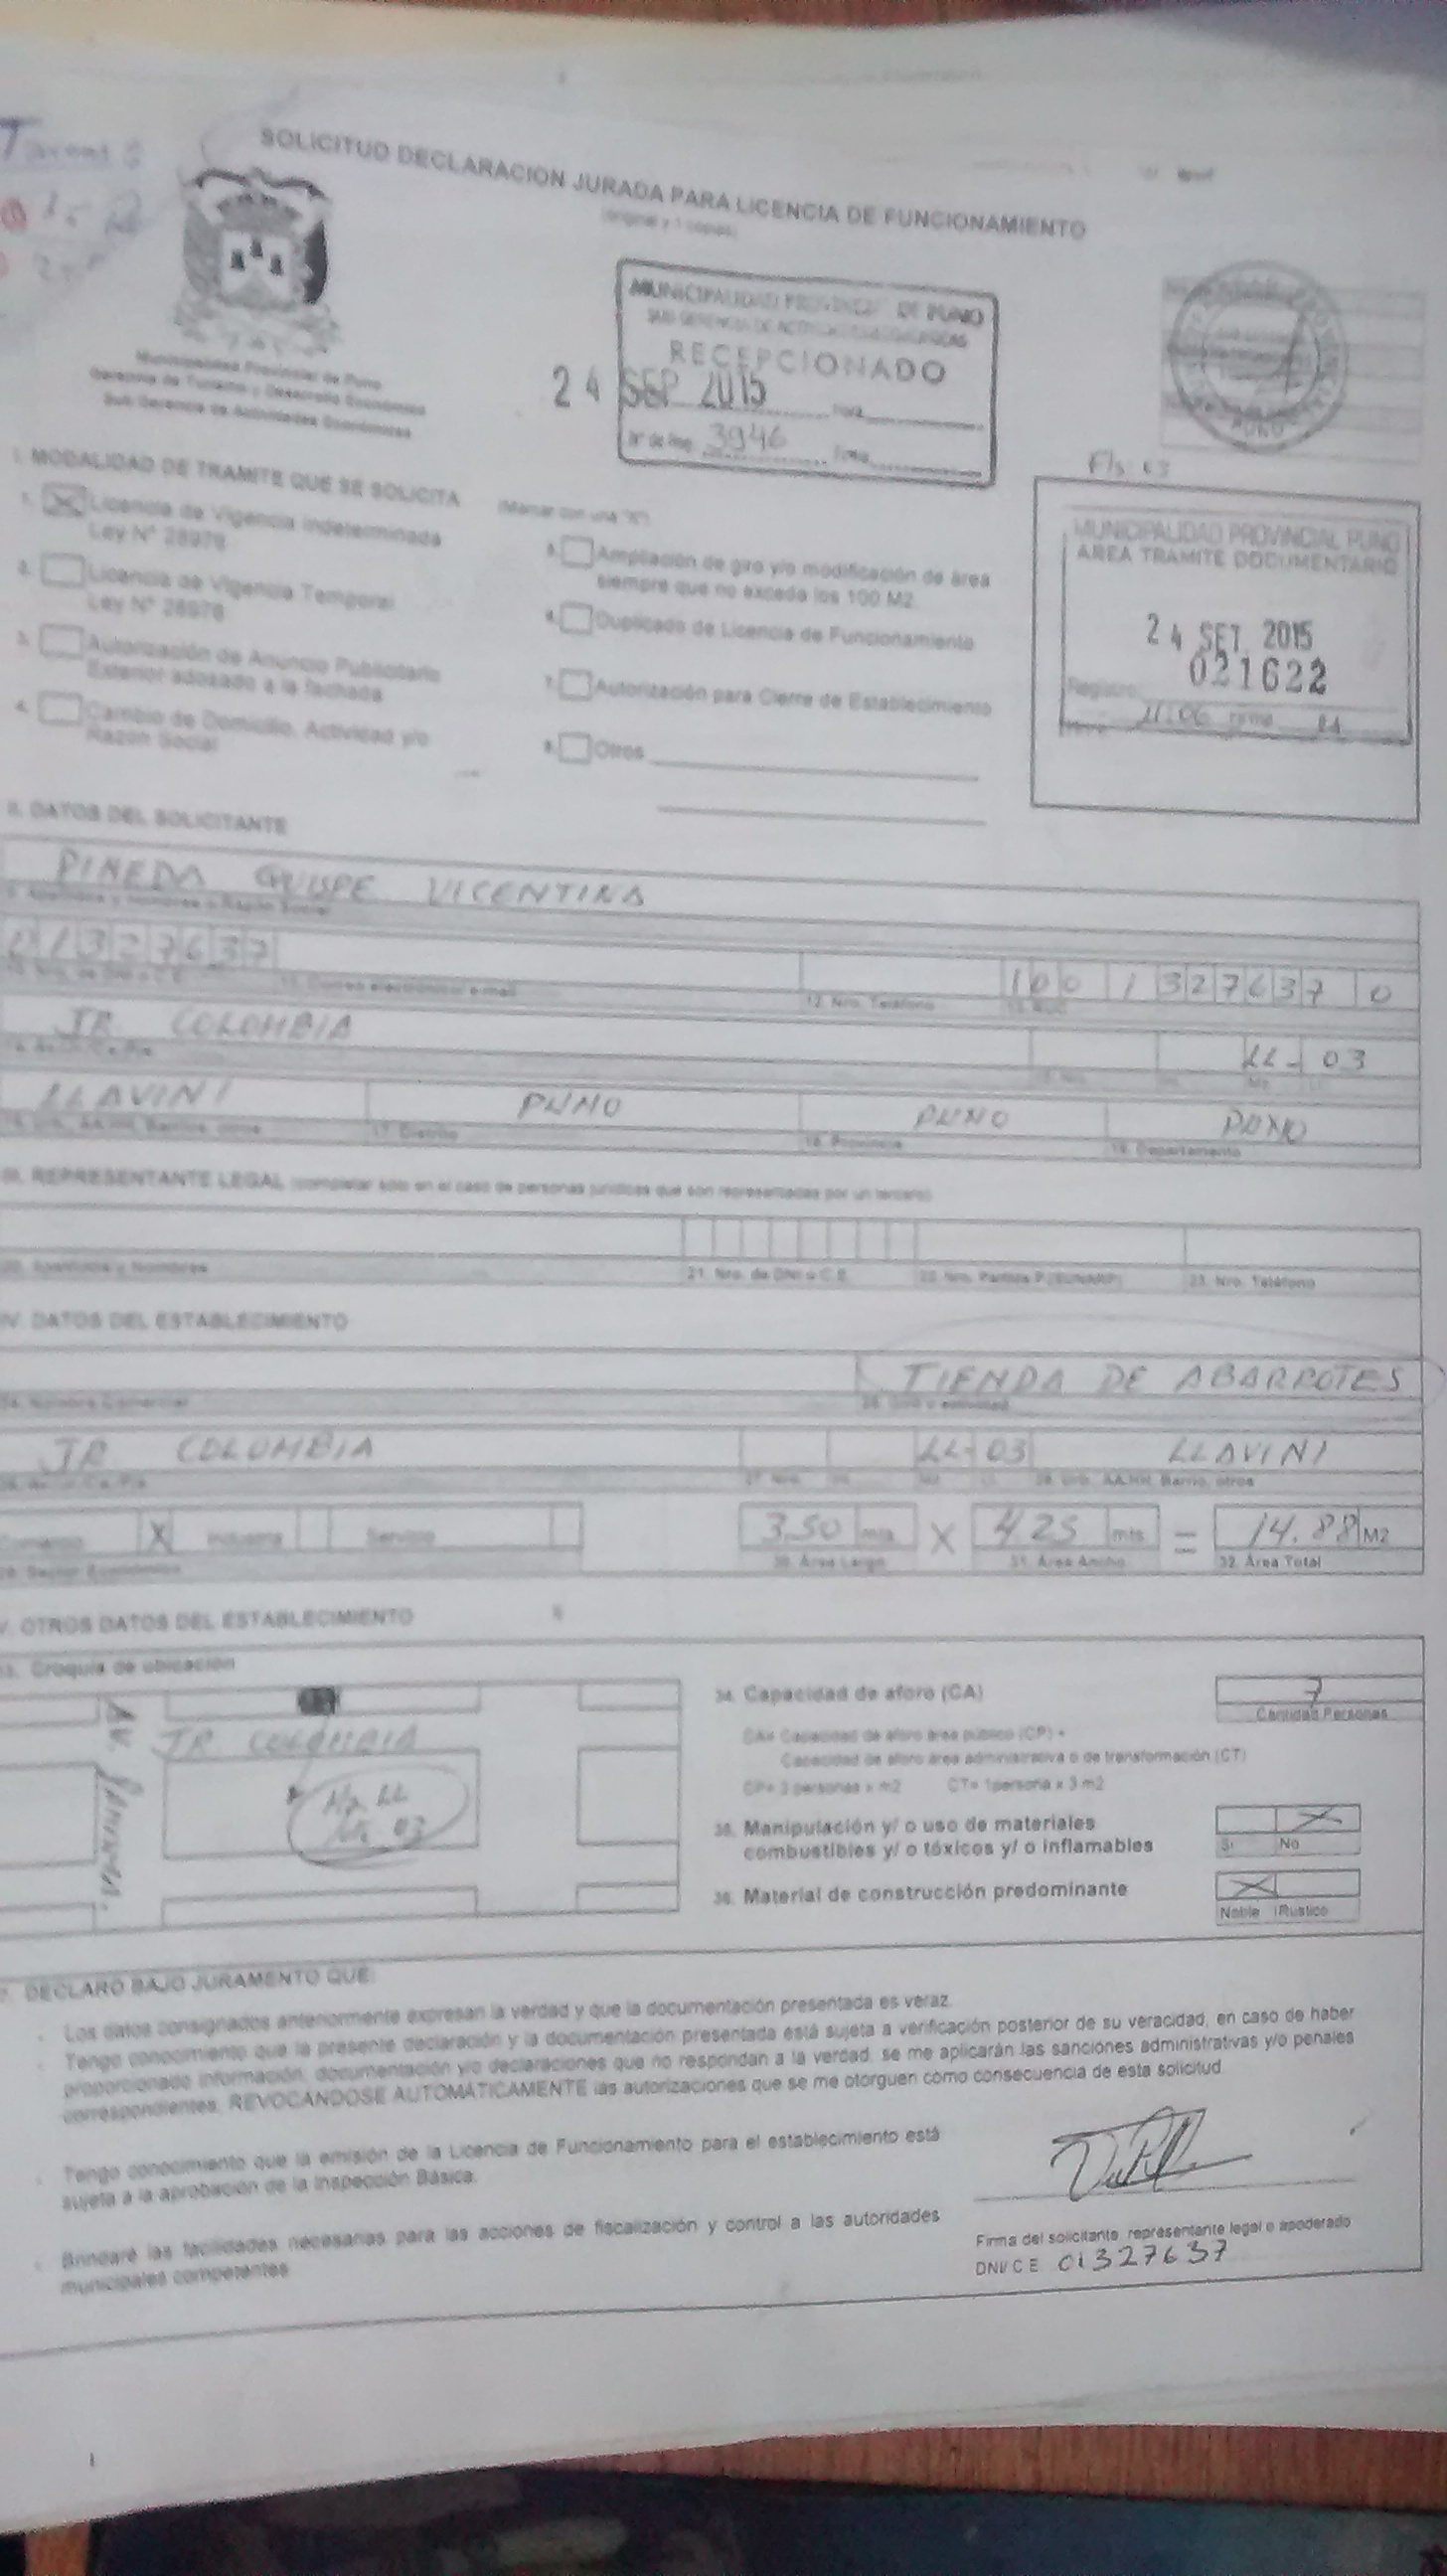 SOLICITUD DECLARACION JURADA PARA LICENCIA DE FUNCIONAMIENTO
(original y 1 copias)
Municipalidad Provincial de Puno
Gerencia de Turismo y Desarrollo Económico
Sub Gerencia de Actividades Económicas
MUNICIPALIDAD PROVINCIAL DE PUNO
SUB GERENCIA DE ACTIVIDADES ECONOMICAS
RECEPCIONADO
24 SEP 2015
N° de Reg. 3946 Firma
PUNO
MUNICIPALIDAD PROVINCIAL PUNO
AREA TRAMITE DOCUMENTARIO
24 SET. 2015
021622
Registro
Firma
I. MODALIDAD DE TRAMITE QUE SE SOLICITA (Marcar con una "X")
1. X Licencia de Vigencia Indeterminada
Ley N° 28976
2. Licencia de Vigencia Temporal
Ley N° 28976
3. Autorización de Anuncio Publicitario
Exterior adosado a la fachada
4. Cambio de Domicilio, Actividad y/o
Razón Social
5. Ampliación de giro y/o modificación de área
siempre que no exceda los 100 M2.
6. Duplicado de Licencia de Funcionamiento
7. Autorización para Cierre de Establecimiento
8. Otros
II. DATOS DEL SOLICITANTE
PINEDA QUISPE VICENTINA
9. Apellidos y nombres o Razón Social
01327637 100 1327637 0
10. Nro. de DNI o C.E. 11. Correo electrónico/ e-mail 12. Nro. Teléfono 13. RUC
JR COLOMBIA LL-03
LLAVINI PUNO PUNO PUNO
17. Distrito 18. Provincia 19. Departamento
III. REPRESENTANTE LEGAL (completar sólo en el caso de personas jurídicas que son representadas por un tercero)
20. Apellidos y Nombres 21. Nro. de DNI o C.E. 22. Nro. Partida P.(SUNARP) 23. Nro. Teléfono
IV. DATOS DEL ESTABLECIMIENTO
TIENDA DE ABARROTES
24. Nombre Comercial 25. Giro o actividad
JR COLOMBIA LL-03 LLAVINI
27. Nro. 28. Urb., AA.HH, Barrio, otros
Comercio X Industria Servicio 3.50 mts. X 4.25 mts. = 14.88 M2
29. Sector Económico 30. Área Largo 31. Área Ancho 32. Área Total
V. OTROS DATOS DEL ESTABLECIMIENTO
33. Croquis de ubicación
JR COLOMBIA
Mz LL
Lte 03
34. Capacidad de aforo (CA) 7
Cantidad Personas
CA= Capacidad de aforo área público (CP) +
Capacidad de aforo área administrativa o de transformación (CT)
CP= 3 personas x m2 CT= 1persona x 3 m2
35. Manipulación y/ o uso de materiales
combustibles y/ o tóxicos y/ o inflamables X
Si No
36. Material de construcción predominante X
Noble Rustico
DECLARO BAJO JURAMENTO QUE:
Los datos consignados anteriormente expresan la verdad y que la documentación presentada es veraz.
Tengo conocimiento que la presente declaración y la documentación presentada está sujeta a verificación posterior de su veracidad, en caso de haber
proporcionado información, documentación y/o declaraciones que no respondan a la verdad, se me aplicarán las sanciones administrativas y/o penales
correspondientes, REVOCANDOSE AUTOMÁTICAMENTE las autorizaciones que se me otorguen como consecuencia de esta solicitud.
Tengo conocimiento que la emisión de la Licencia de Funcionamiento para el establecimiento está
sujeta a la aprobación de la Inspección Básica.
Brindaré las facilidades necesarias para las acciones de fiscalización y control a las autoridades
municipales competentes
Firma del solicitante, representante legal o apoderado
DNI/ C.E. 01327637